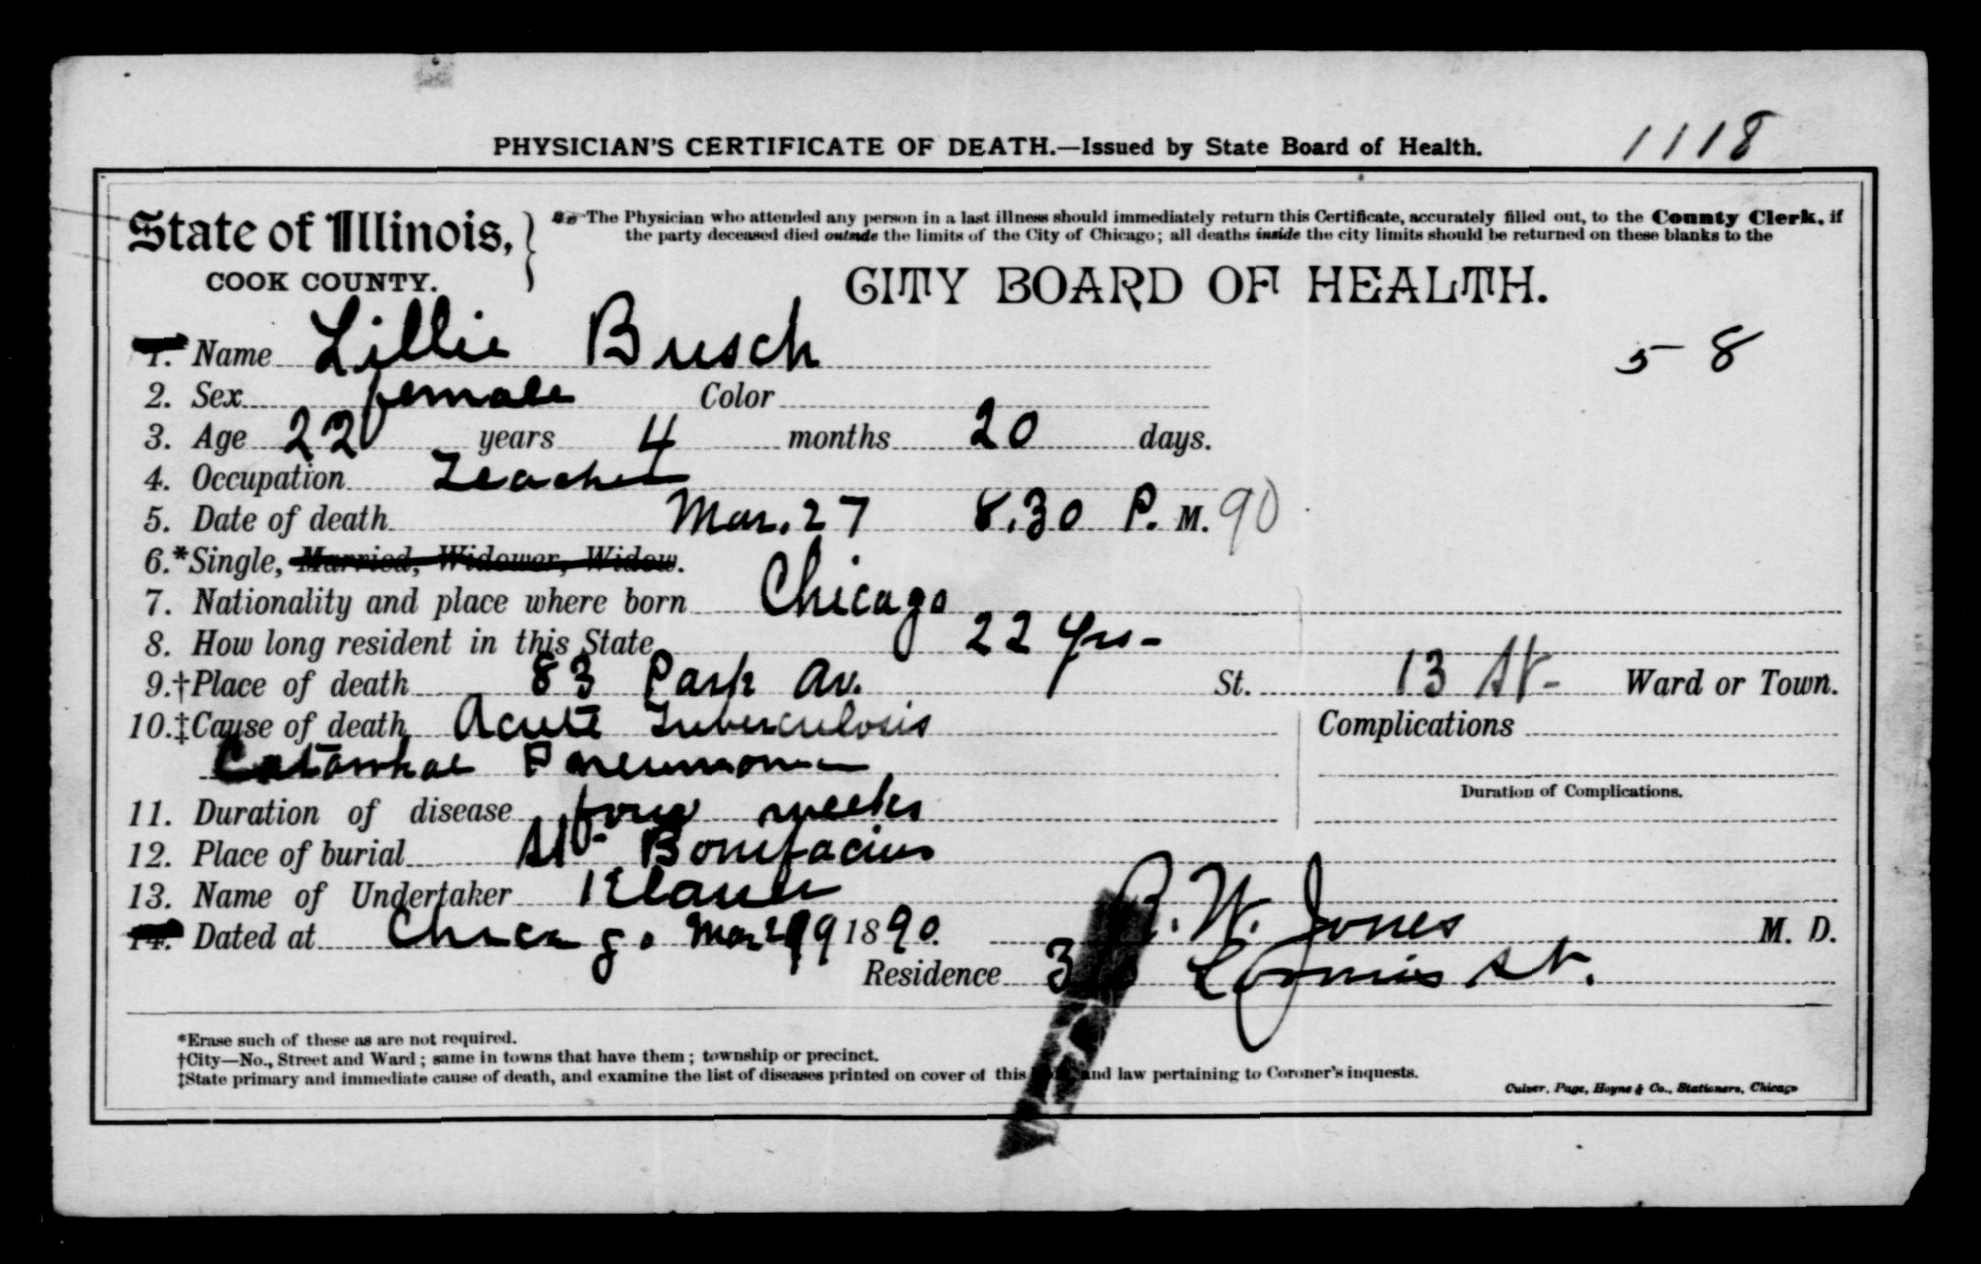 1118
PHYSICIAN'S CERTIFICATE OF DEATH.—Issued by State Board of Health.
State of Illinois, } The Physician who attended any person in a last illness should immediately return this Certificate, accurately filled out, to the County Clerk, if
the party deceased died outside the limits of the City of Chicago; all deaths inside the city limits should be returned on these blanks to the
COOK COUNTY. CITY BOARD OF HEALTH.
1. Name Lillie Busch 5-8
2. Sex female Color
3. Age 22 years 4 months 20 days.
4. Occupation Teacher
5. Date of death Mar. 27 8.30 P. M. 90
6.*Single, Married, Widower, Widow.
7. Nationality and place where born Chicago
8. How long resident in this State 22 Yrs-
9.†Place of death 83 Park Av. St. 13 Ward or Town.
10.‡Cause of death Acute Tuberculosis Complications
Catarrhal Pneumonia
Duration of Complications.
11. Duration of disease four weeks
12. Place of burial St Bonifacius
13. Name of Undertaker
14. Dated at Chicago Mar 29 1890. W. Jones M. D.
Residence 3 St.
*Erase such of these as are not required.
†City—No., Street and Ward; same in towns that have them; township or precinct.
‡State primary and immediate cause of death, and examine the list of diseases printed on cover of this and law pertaining to Coroner's inquests.
Culver, Page, Hoyne & Co., Stationers, Chicago